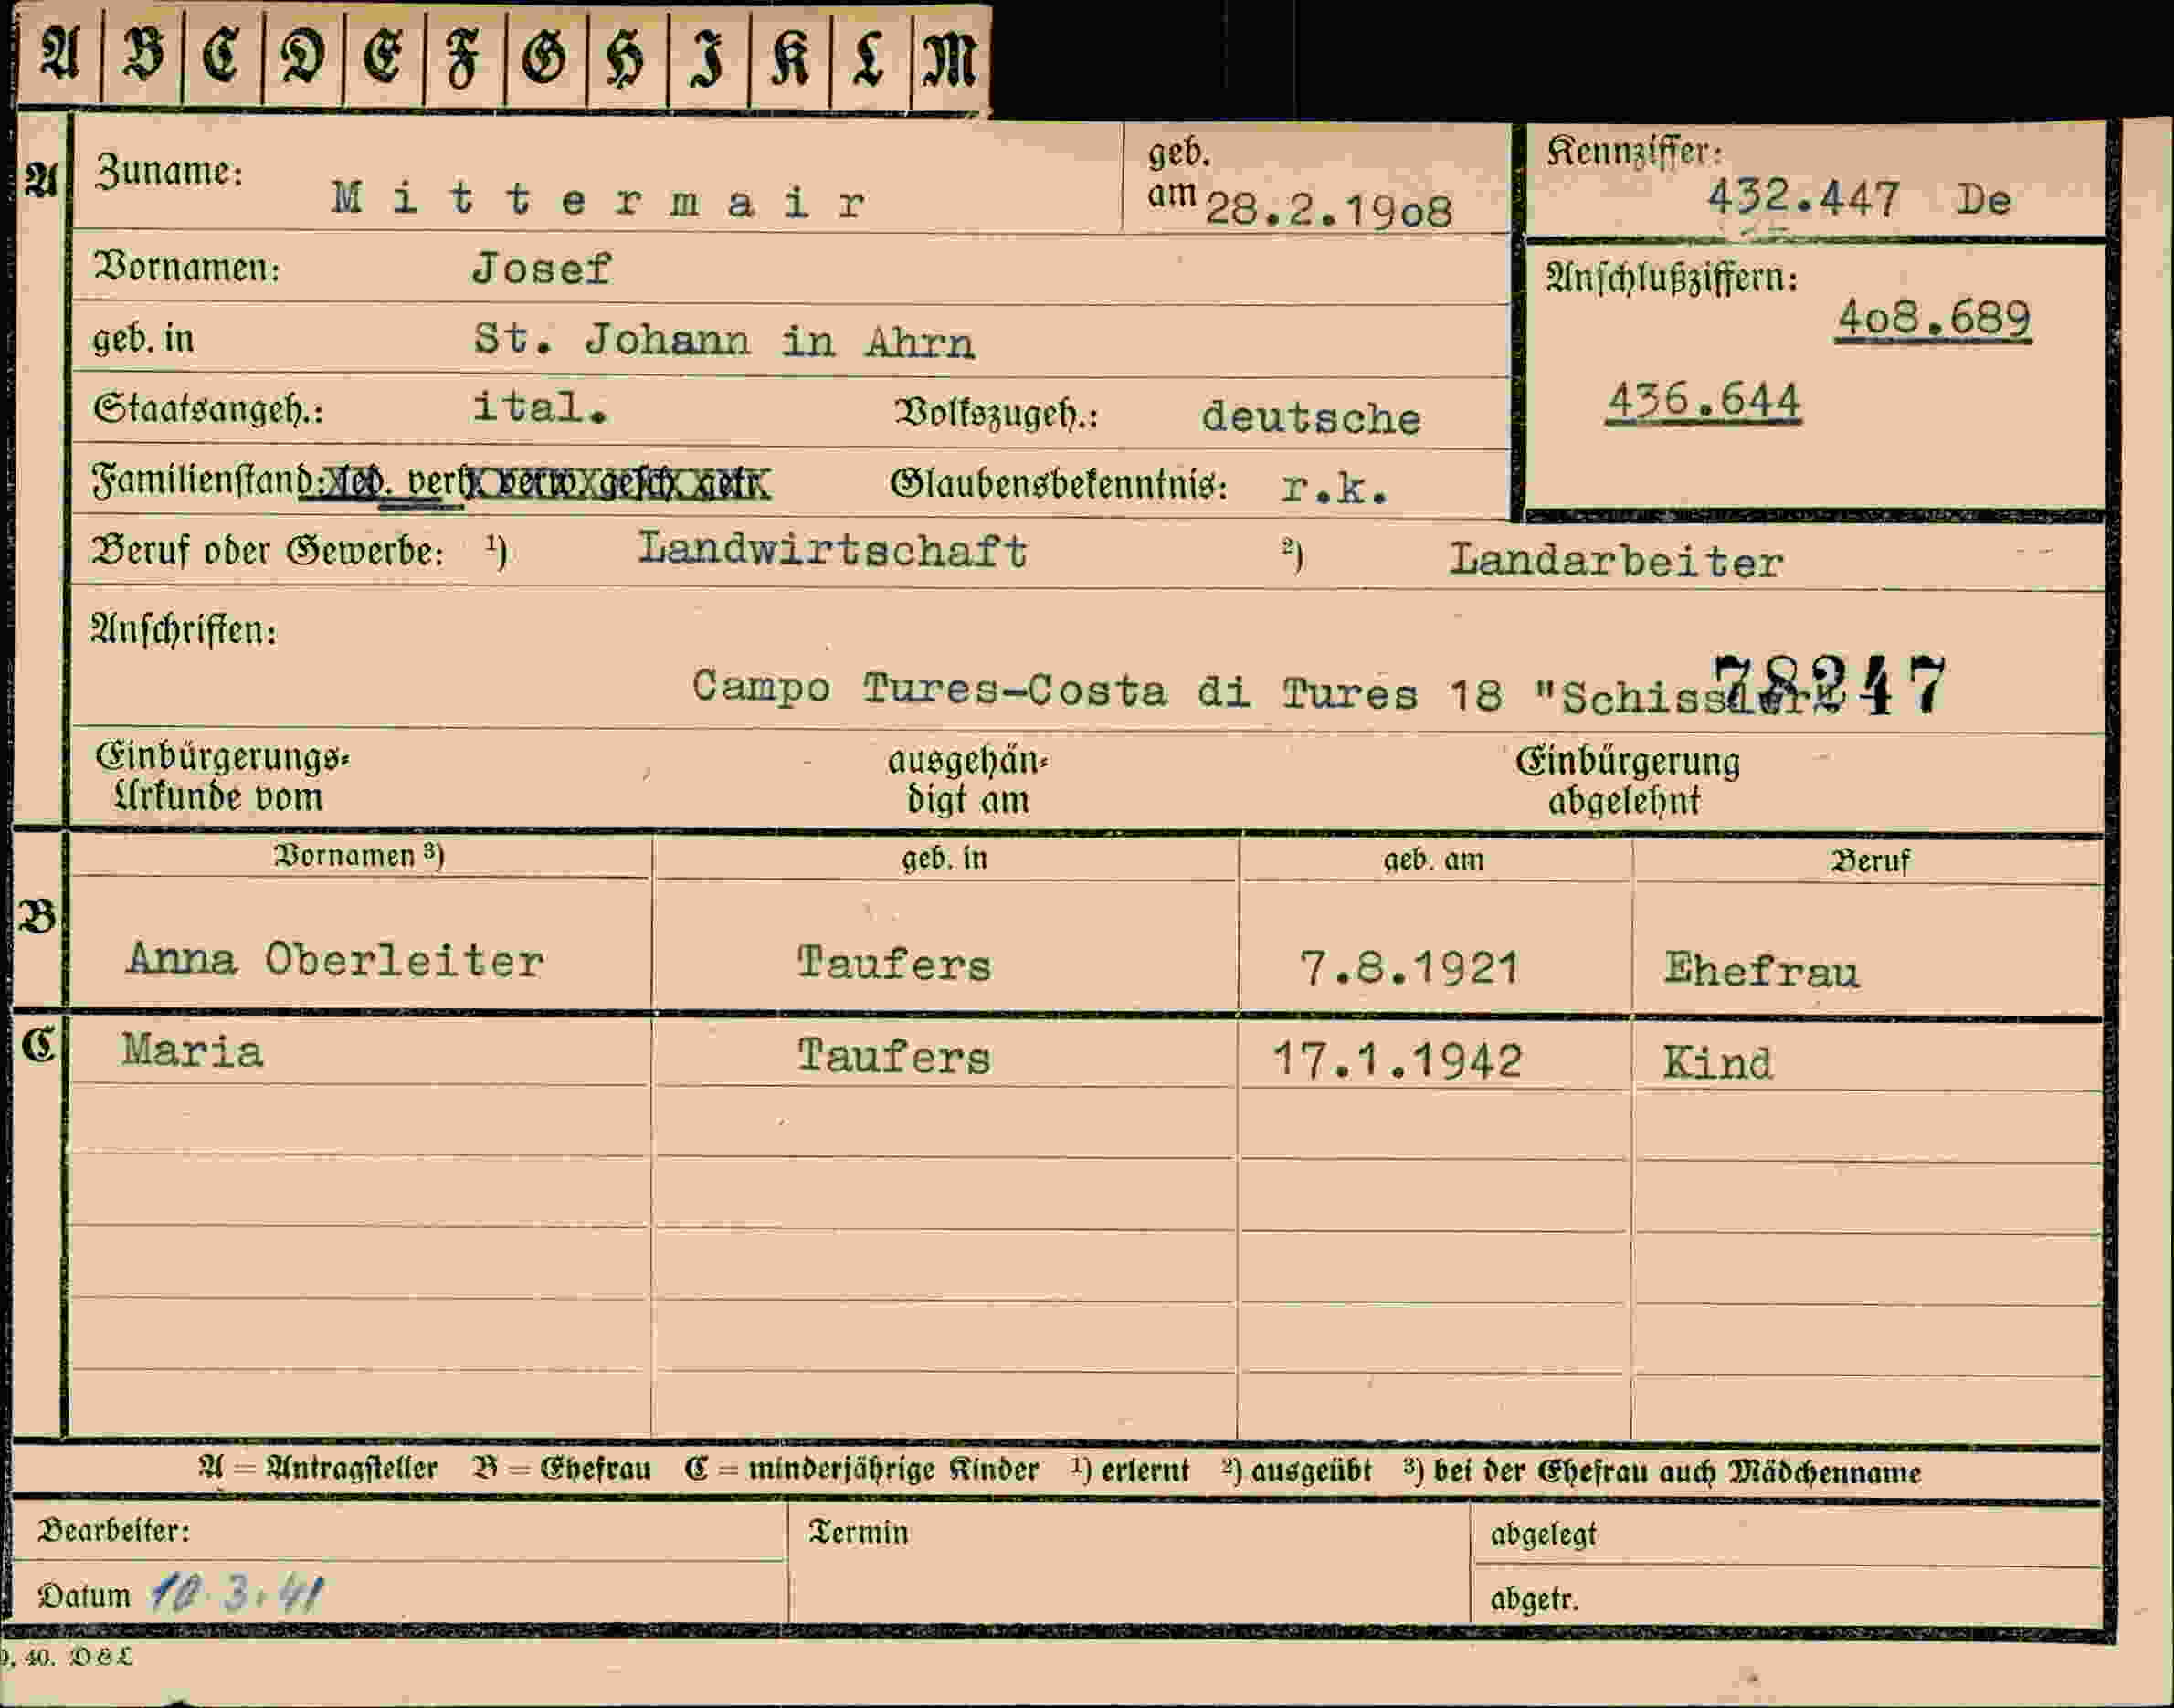 A B C D E F G H I K L M
A Zuname: Mittermair geb. am 28.2.1908 Kennziffer: 432.447 De
Vornamen: Josef
Anschlußziffern: 408.689
geb. in St. Johann in Ahrn
436.644
Staatsangeh.: ital. Volkszugeh.: deutsche
Familienstand: led. verh. verw. gesch. getr. Glaubensbekenntnis: r.k.
Beruf oder Gewerbe: 1) Landwirtschaft 2) Landarbeiter
Anschriften:
Campo Tures-Costa di Tures 18 78247
Einbürgerungs- ausgehän- Einbürgerung
Urkunde vom digt am abgelehnt
Vornamen 3) geb. in geb. am Beruf
B Anna Oberleiter Taufers 7.8.1921 Ehefrau
C Maria Taufers 17.1.1942 Kind
A = Antragsteller B = Ehefrau C = minderjährige Kinder 1) erlernt 2) ausgeübt 3) bei der Ehefrau auch Mädchenname
Bearbeiter: Termin abgelegt
Datum 10.3.41 abgetr.
40.